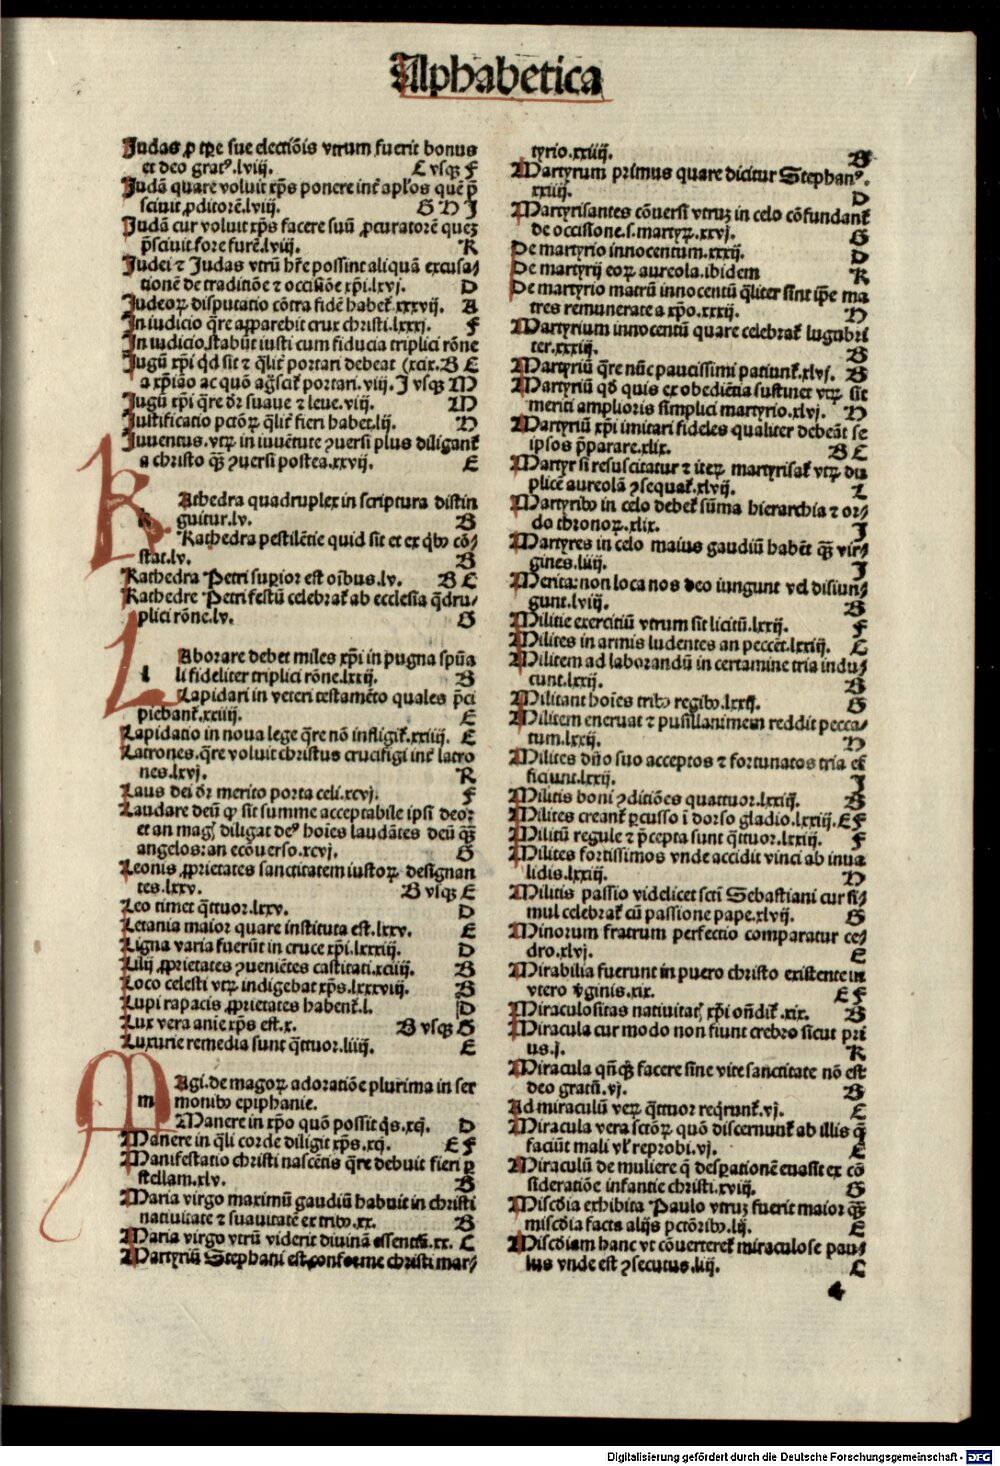 Alphabetica
Judas ꝓ tꝑe sue electiõis vtrum fuerit bonus
et deo gratꝰ.lviij. C vsqꝫ F
Judã quare voluit xp̃s ponere int̃ apl'os quẽ p̃
sciuit ꝓditorẽ.lviij. G H I
Judã cur voluit xp̃s facere suũ ꝓcuratorẽ quẽ
p̃sciuit fore furẽ.lviij. K
Judei ⁊ Judas vtrũ hr̃e possint aliquã excusa⸗
tionẽ de traditiõe ⁊ occisiõe xp̃i.lxvj. D
Judeoꝝ disputatio cõtra fidẽ habet̃.xxxvij. A
In iudicio q̃re apparebit crux christi.lxxxj. F
In iudicio stabũt iusti cum fiducia triplici rõne
Jugũ xp̃i qd̃ sit ⁊ q̃lit̃ portari debeat (xcix.B E
a xp̃ião ac quõ ag̃scit̃ portari.viij. I vsqꝫ M
Jugũ xp̃i q̃re dr̃ suaue ⁊ leue.viij. M
Justificatio pctõꝝ q̃lit̃ fieri habet.lij. H
Juuentus.vtꝝ in iuuẽtute ꝯuersi plus diligant̃
a christo qꝫ̃ ꝯuersi postea.xxvij. E
k Athedra quadruplex in scriptura distin
guitur.lv. B
Kathedra pestilẽtie quid sit et ex qͥbꝰ cõ⸗
stat.lv. B
Kathedra Petri suꝑior est oĩbus.lv. B C
Kathedre Petri festũ celebrat̃ ab ecclesia q̃dru⸗
plici rõne.lv. G
l Aborare debet miles xp̃i in pugna spũa
li fideliter triplici rõne.lxxij. B
Lapidari in veteri testamẽto quales p̃ci
piebant̃.xxiiij. E
Lapidatio in noua lege q̃re nõ infligit̃.xxiiij. E
Latrones.q̃re voluit christus crucifigi int̃ latro
nes.lxvj. K
Laus dei dr̃ merito porta celi.xcvj. F
Laudare deũ ꝙ sit summe acceptabile ipsi deo:
et an mag̃ diligat deꝰ hoĩes laudãtes deũ qꝫ̃
angelos:an ecõuerso.xcvj. G
Leonis ꝓprietates sanctitatem iustoꝝ designan
tes.lxxv. B vsqꝫ E
Leo timet q̃ttuor.lxxv. D
Letania maior quare instituta est.lxxv. E
Ligna varia fuerũt in cruce xp̃i.lxxxiij. D
Lilij ꝓprietates ꝯueniẽtes castitati.xciiij. B
Loco celesti vtꝝ indigebat xp̃s.lxxxviij. B
Lupi rapacis ꝓprietates habent̃.l. D
Lux vera anie xp̃s est.x. B vsqꝫ G
Luxurie remedia sunt q̃ttuor.liiij. E
m Agi.de magoꝝ adoratiõe plurima in ser
monibꝰ epiphanie.
Manere in xp̃o quõ possit q̃s.xcij. D
Manere in q̃li corde diligit xp̃s.xcj. E F
Manifestatio christi nascẽtis q̃re debuit fieri ꝑ
stellam.xlv. B
Maria virgo maximũ gaudiũ habuit in christi
natiuitate ⁊ suauitatẽ ex tribꝰ.xx. B
Maria virgo vtrũ viderit diuinã essentiã.xx. C
Martyriũ Stephani est conforme christi mar⸗
tyrio.xxiiij. B
Martyrum primus quare dicitur Stephanꝰ.
xxiiij. D
Martyrisantes cõuersi vtruꝫ in celo cõfundant̃
de occisione.s.martyꝝ.xxvj. G
De martyrio innocentum.xxxij. D
De martyrij eoꝝ aureola.ibidem K
De martyrio matrũ innocentũ q̃liter sint ip̃e ma
tres remunerate a xp̃o.xxxij. H
Martyrium innocentũ quare celebrat̃ lugubri
ter.xxxiij. B
Martyriũ q̃re nũc paucissimi patiunt̃.xlvj. B
Martyriũ qd̃ quis ex obediẽtia sustinet vtꝝ sit
meriti amplioris simplici martyrio.xlvj. H
Martyriũ xp̃i imitari fideles qualiter debeãt se
ipsos p̃parare.xlix. B C
Martyr si resuscitatur ⁊ iteꝝ martyrisat̃ vtꝝ du
plicẽ aureolã ꝯsequat̃.xlvij. L
Martyribꝰ in celo debet̃ sũma hierarchia ⁊ or⸗
do thronoꝝ.xlix. I
Martyres in celo maius gaudiũ habẽt qꝫ̃ vir⸗
gines.liiij. I
Merita:non loca nos deo iungunt vel disiun⸗
gunt.lviij. B
Militie exercitiũ vtrum sit licitũ.lxxij. F
Milites in armis ludentes an peccẽt.lxxiij. C
Militem ad laborandũ in certamine tria indu⸗
cunt.lxxij. B
Militant hoĩes tribꝰ regibꝰ.lxxij. G
Militem eneruat ⁊ pusillanimem reddit pecca⸗
tum.lxxij. H
Milites dño suo acceptos ⁊ fortunatos tria ef
ficiunt.lxxij. I
Militis boni ꝯditiões quattuor.lxxiij. B
Milites creant̃ ꝑcusso ĩ dorso gladio.lxxiij. E F
Militũ regule ⁊ p̃cepta sunt q̃ttuor.lxxiij. F
Milites fortissimos vnde accidit vinci ab inua
lidis.lxxiij. H
Militis passio videlicet scti̇ Sebastiani cur si⸗
mul celebrat̃ cũ passione pape.xlvij. G
Minorum fratrum perfectio comparatur ce⸗
dro.xlvj. E
Mirabilia fuerunt in puero christo existente in
vtero ṽginis.xix. E F
Miraculositas natiuitat̃ xp̃i oñdit̃.xix. B
Miracula cur modo non fiunt crebro sicut pri
us.j. K
Miracula qñqꝫ facere sine vite sanctitate nõ est
deo gratũ.vj. B
Ad miraculũ veꝝ q̃ttuor req̃runt̃.vj. C
Miracula vera sctõꝝ quõ discernunt̃ ab illis q̃
faciũt mali vl' reprobi.vj. E
Miraculũ de muliere q̃ desꝑationẽ euasit ex cõ
sideratiõe infantie christi.xviij. G
Miscd̃ia exhibita Paulo vtruꝫ fuerit maior qꝫ̃
miscd̃ia facta alijs pctõribꝰ.lij. E
Miscd̃iam hanc vt cõuerteret̃ miraculose pau⸗
lus vnde est ꝯsecutus.lij. C
4
Digitalisierung gefördert durch die Deutsche Forschungsgemeinschaft - DFG